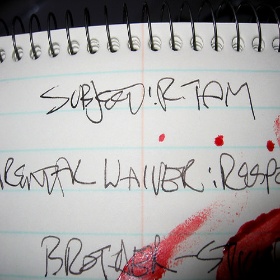 SUBJECT: R. TAM
PARENTAL WAIVER: RESPE
BROTHER - S